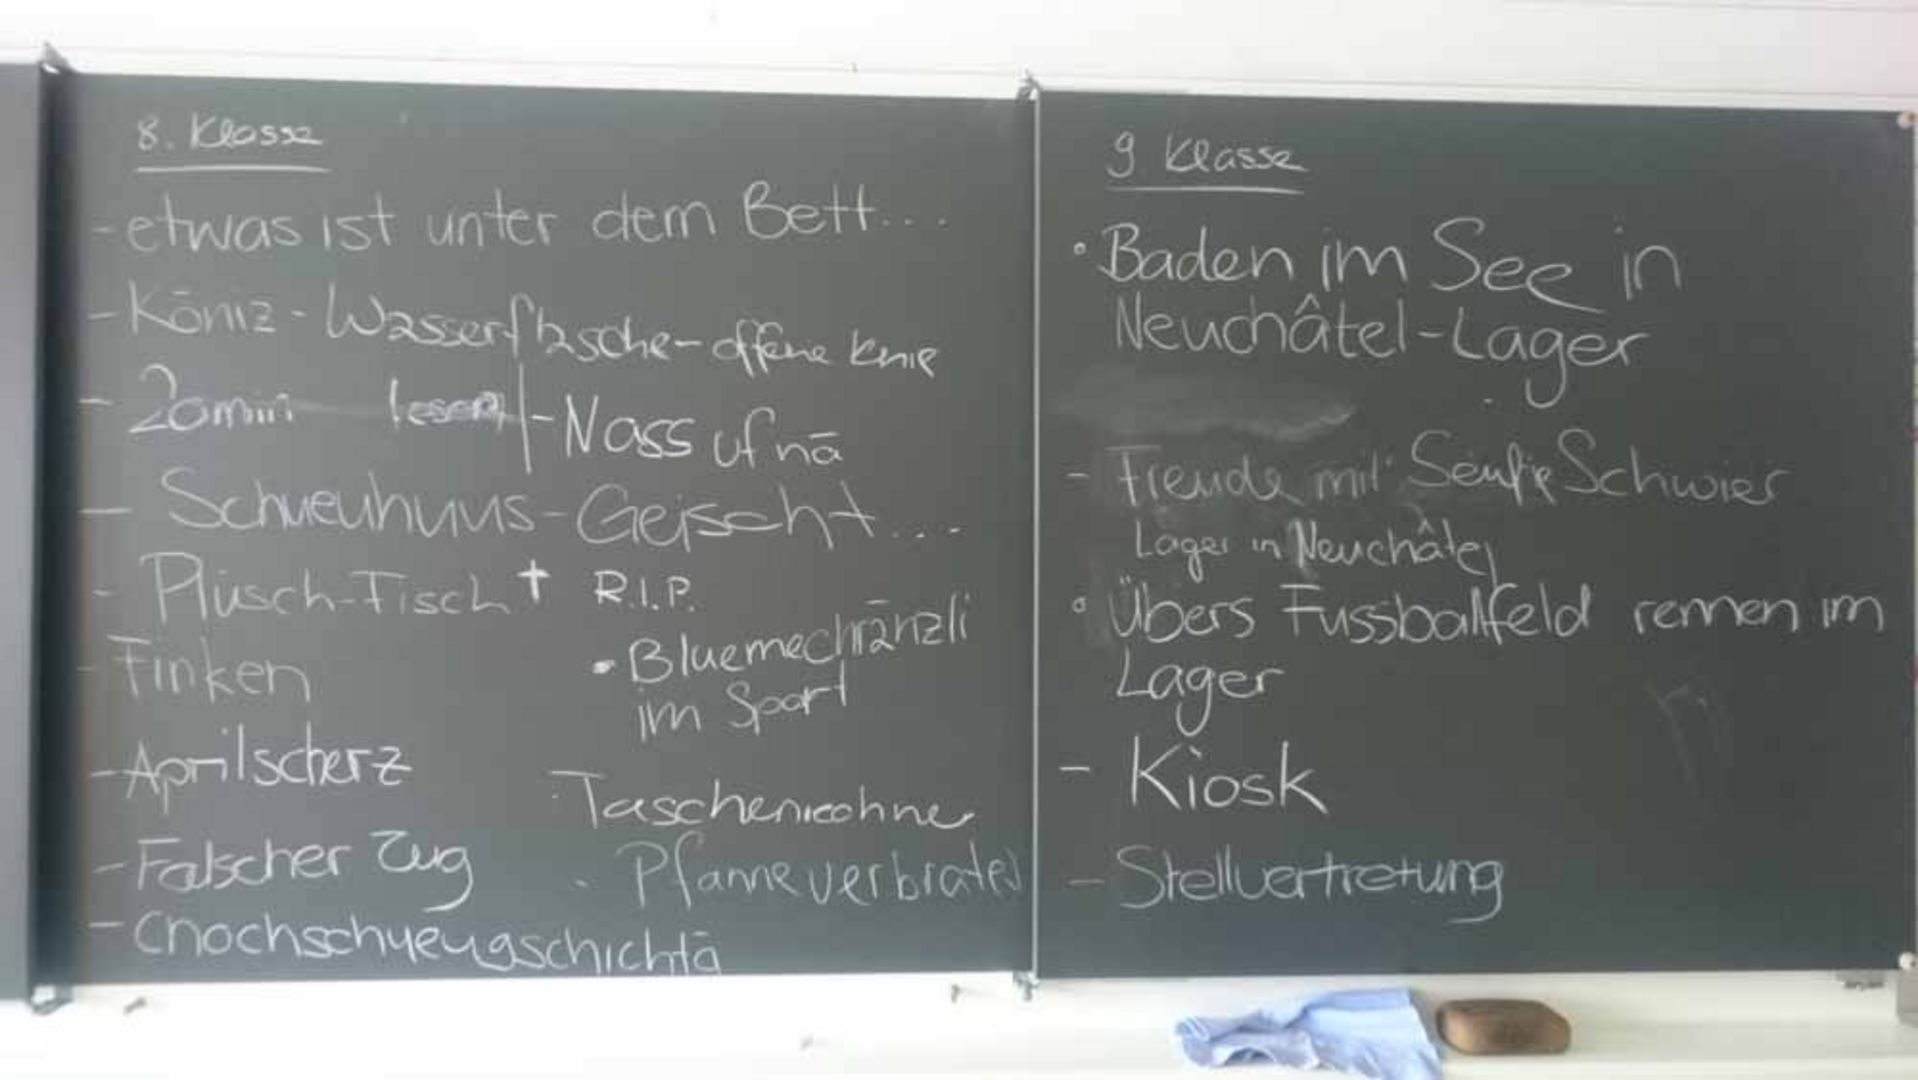 8. Klasse
- etwas ist unter dem Bett...
- Köniz - Wasserflasche - offene Knie
- 20min lesen | - Nass ufnä
- Schueuhuus - Geischt....
- Plüsch-Fisch † R.I.P.
- Finken
• Bluemechränzli
im Sport
- Aprilscherz
Taschenrechner
- Falscher Zug
- Pfanne verbraten
- Chochschueugschichtä
9 Klasse
• Baden im See in
Neuchâtel-Lager
- Freude mit Seife Schwier
Lager in Neuchâtel
• Übers Fussballfeld rennen im
Lager
- Kiosk
- Stellvertretung